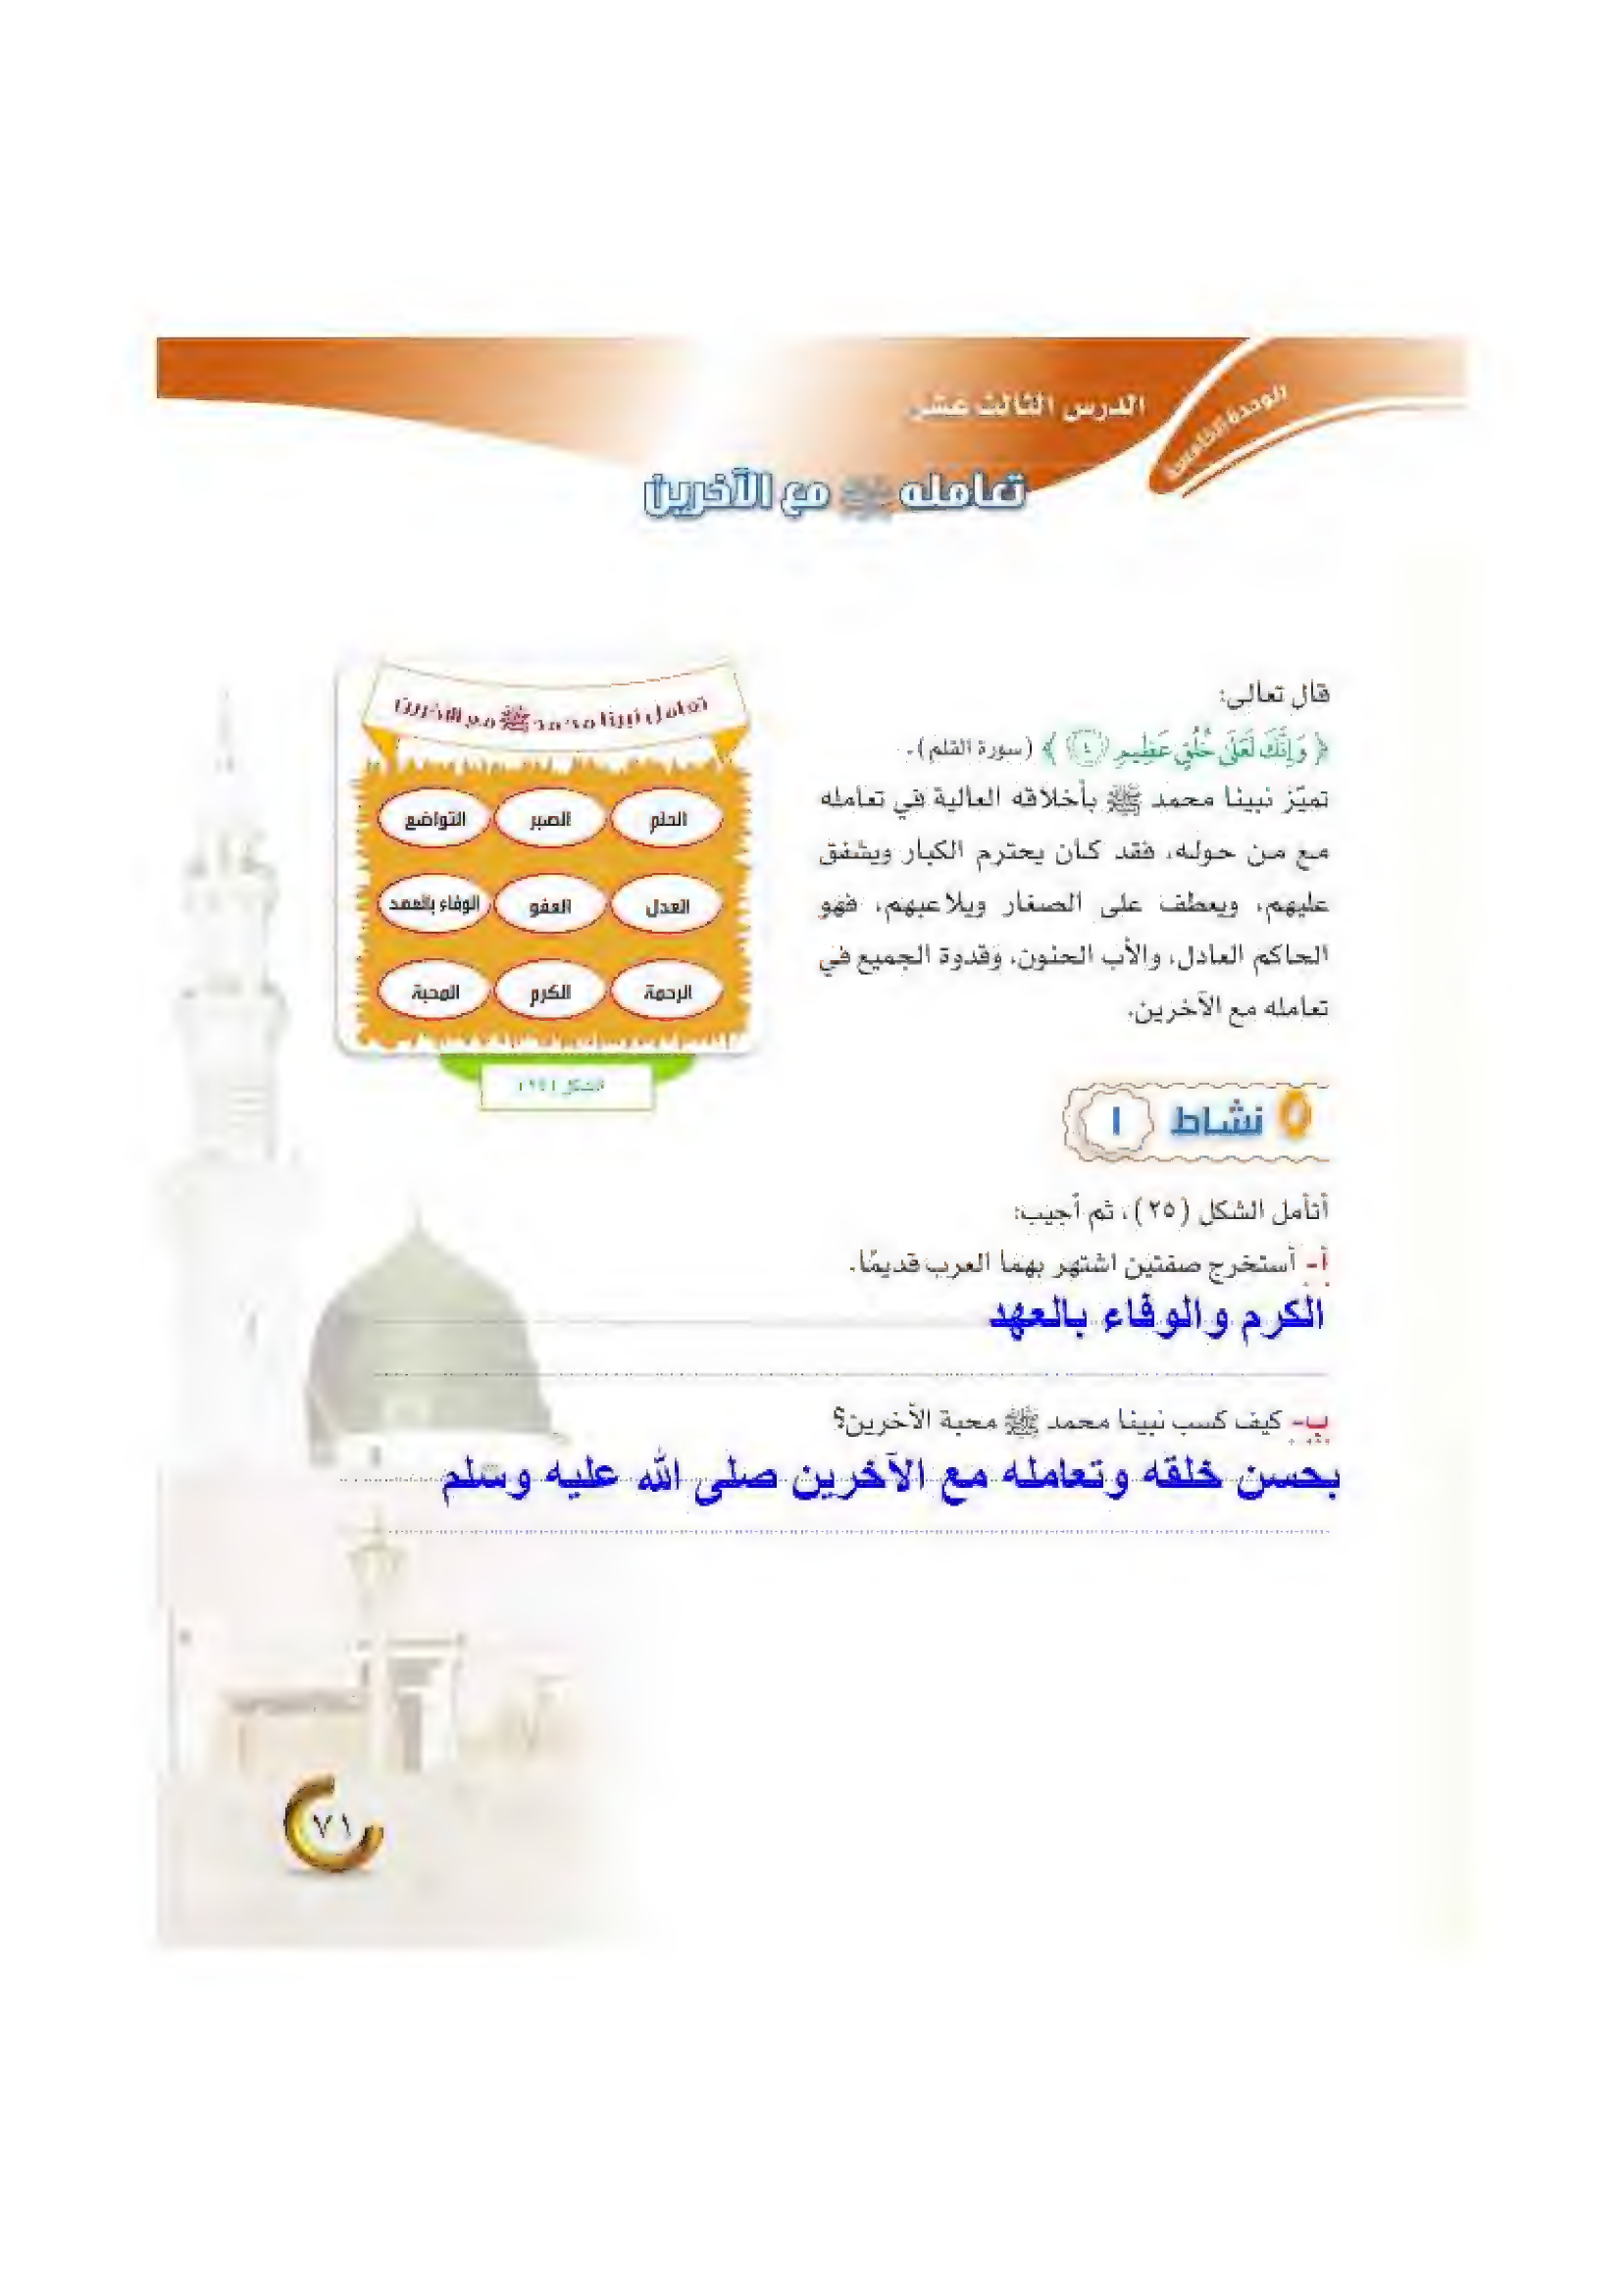 الوحدة الخامسة
الدرس الثالث عشر
تعامله ﷺ مع الآخرين
قال تعالى:
﴿ وَإِنَّكَ لَعَلَىٰ خُلُقٍ عَظِيمٍ ﴿٤﴾ ﴾ (سورة القلم).
تميّز نبينا محمد ﷺ بأخلاقه العالية في تعامله
مع من حوله، فقد كان يحترم الكبار ويشفق
عليهم، ويعطف على الصغار ويلاعبهم، فهو
الحاكم العادل، والأب الحنون، وقدوة الجميع في
تعامله مع الآخرين.
تعامل نبينا محمد ﷺ مع الآخرين
الحلم الصبر التواضع
العدل العفو الوفاء بالعهد
الرحمة الكرم المحبة
الشكل (٢٥)
نشاط ١
أتأمل الشكل (٢٥)، ثم أجيب:
أ- أستخرج صفتين اشتهر بهما العرب قديمًا.
الكرم والوفاء بالعهد
ب- كيف كسب نبينا محمد ﷺ محبة الآخرين؟
بحسن خلقه وتعامله مع الآخرين صلى الله عليه وسلم
٧١